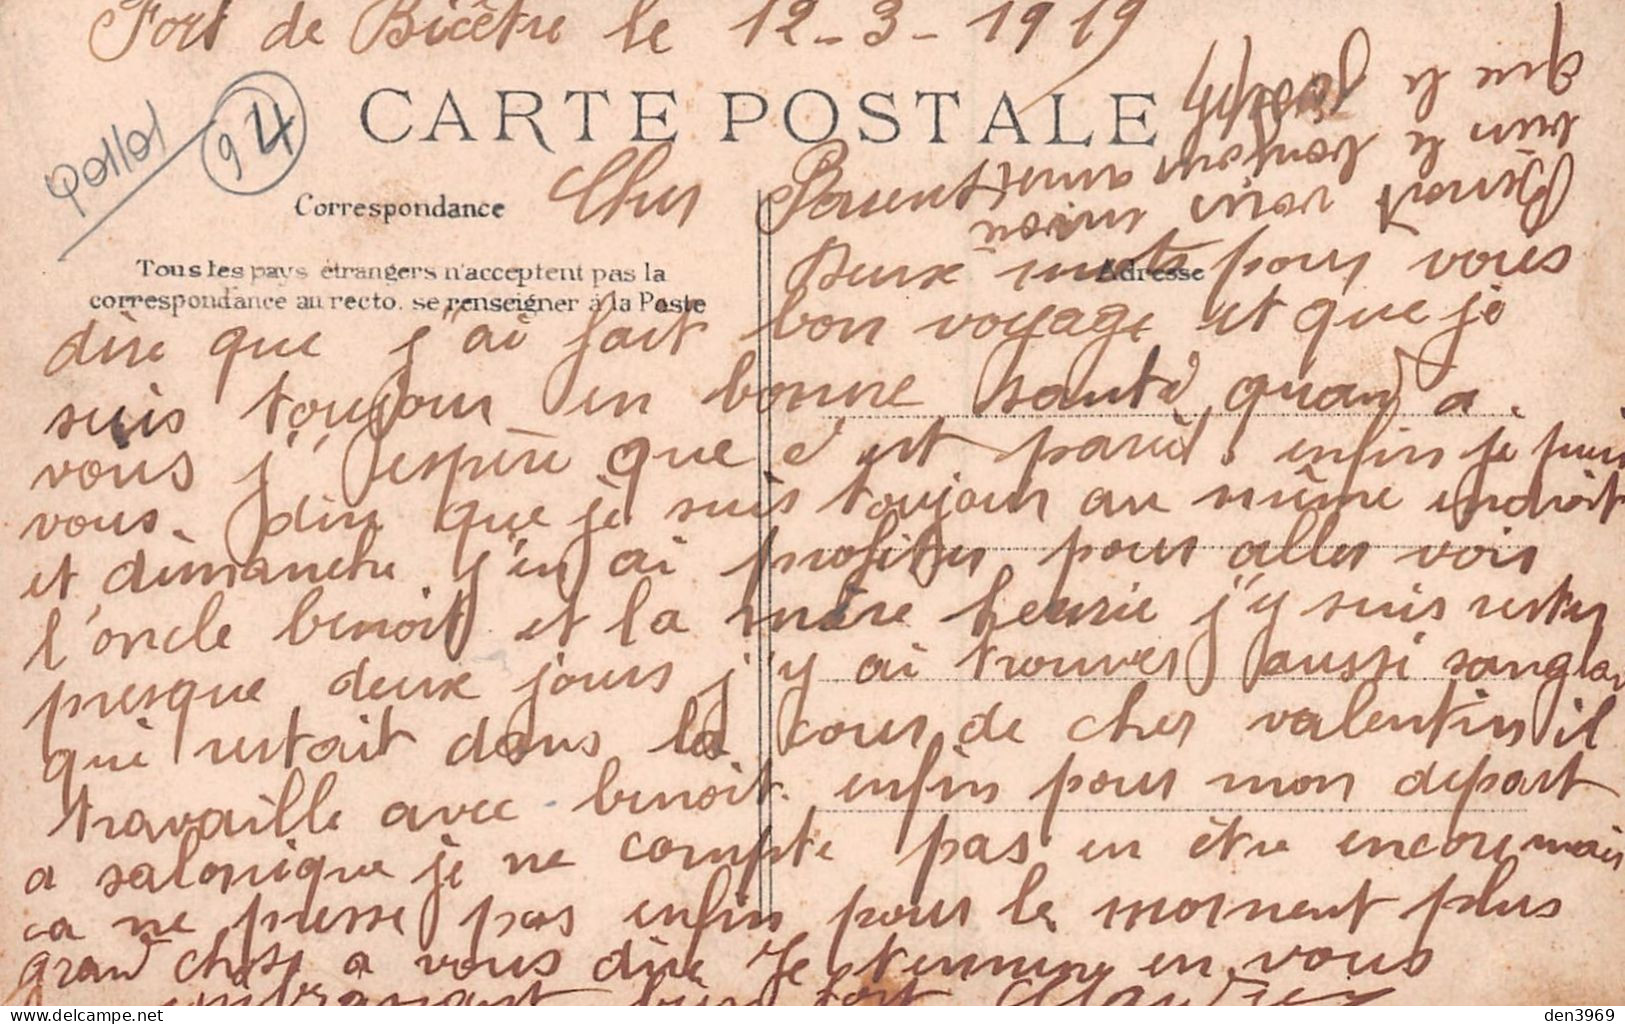 Fort de Bicêtre le 12-3-1919
94
CARTE POSTALE
Correspondance
Tous les pays étrangers n'acceptent pas la
correspondance au recto. se renseigner à la Poste
Adresse
Cher Parents
deux mots pour vous
dire que j'ai fait bon voyage et que je
suis toujour en bonne santé quand a
vous j'espère que c'est pareil enfin je puis
vous dire que je suis toujour au même endroit
et dimanche j'en ai profiter pour aller voir
l'oncle benoit et la mère j'y suis rester
presque deux jours j'y ai trouver aussi
qui restait dans la cour de cher valentin il
travaille avec benoit. enfin pour mon depart
a salonique je ne compte pas en être encore mais
ca ne presse pas enfin pour le moment plus
grand chose a vous dire Je termine en vous
embrassant bien fort
Benoit vous envoie
bien le bonjour
que le Joseph
den3969